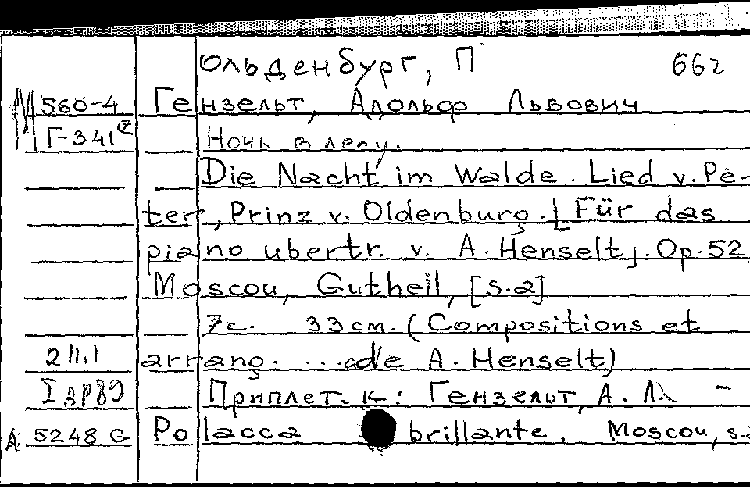 Ольденбург, П 662
М 560-4 Гензельт, Адольф Львович
Г-341 Ночь в лесу.
Die Nacht im Walde. Lied v. Pe-
ter, Prinz v. Oldenburg. [Für das
piano ubertr. v. A. Henselt]. Op. 52
Moscou, Gutheil, [s.a]
7с. 33см. (Compositions et
arrang. ... de A. Henselt)
Приплет. к: Гензельт, А. Л. -
А 5248 G Polacca brillante. Moscou, s.